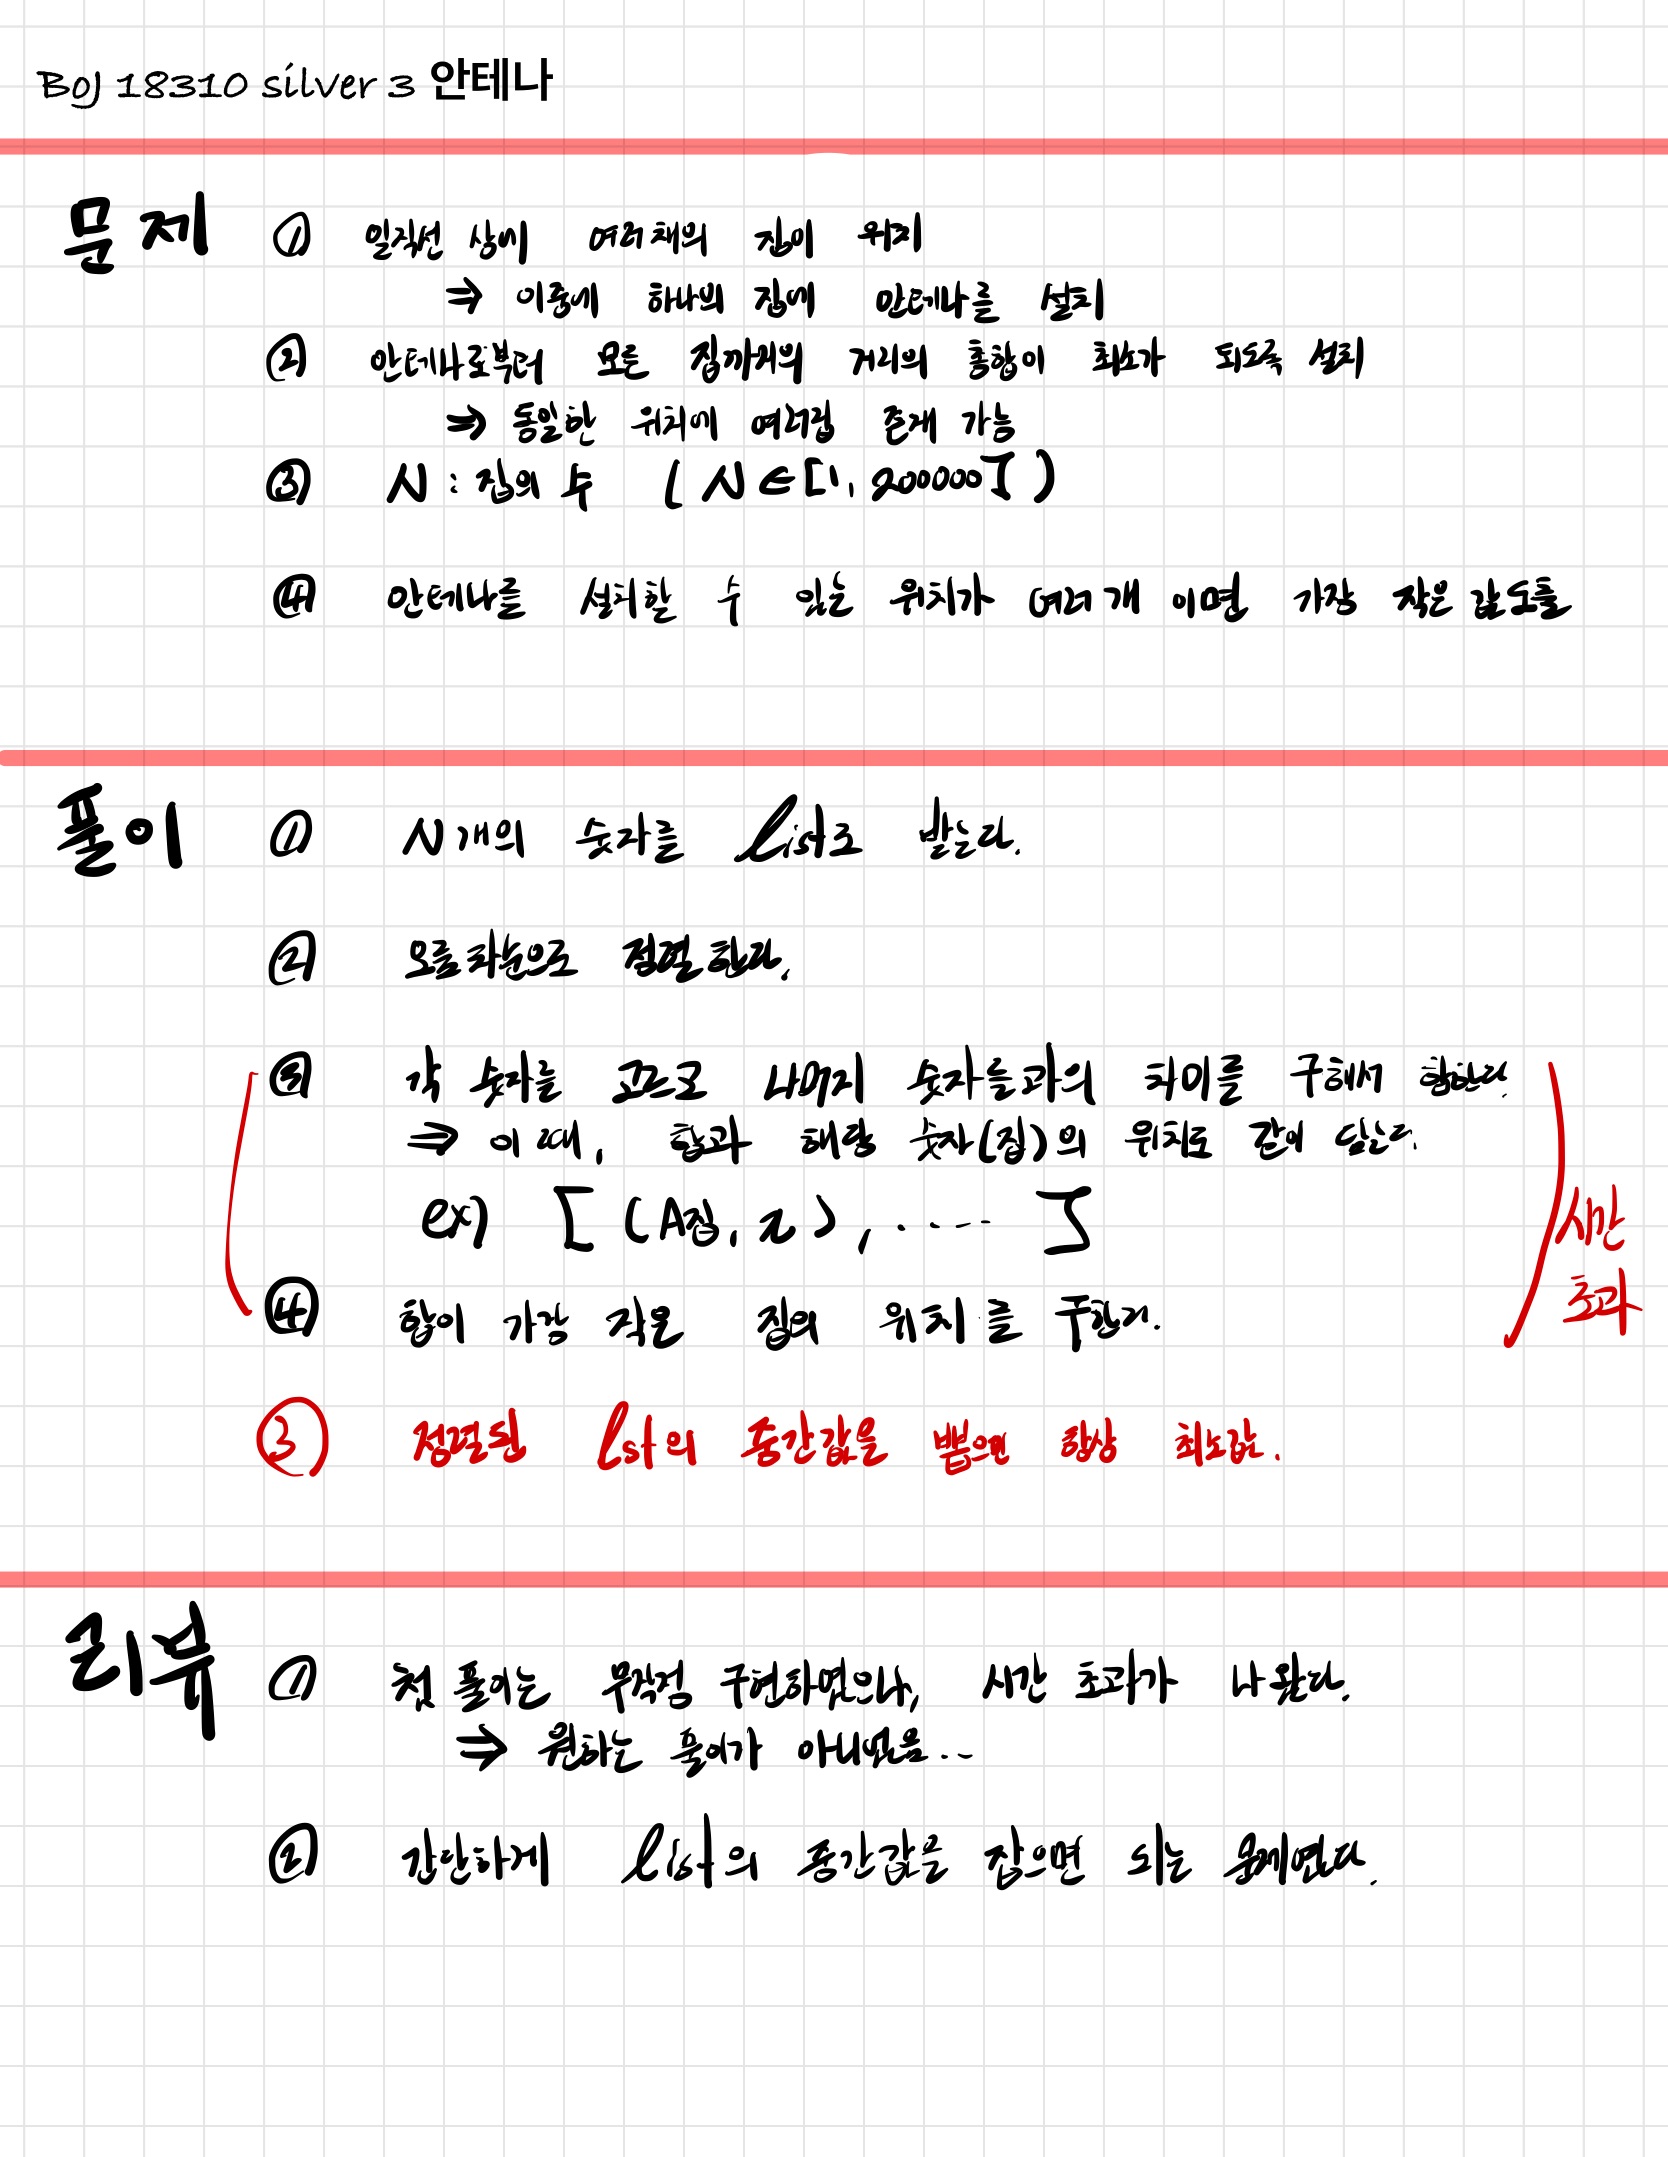 BOJ 18310 silver 3 안테나
문제 ① 일직선 상에 여러채의 집이 위치
⇒ 이중에 하나의 집에 안테나를 설치
② 안테나로부터 모든 집까지의 거리의 총합이 최소가 되도록 설치
⇒ 동일한 위치에 여러집 존재 가능
③ N : 집의 수 ( N ∈ [1, 200000] )
④ 안테나를 설치할 수 있는 위치가 여러개 이면 가장 작은 값 도출
풀이 ① N개의 숫자를 list로 받는다.
② 오름차순으로 정렬한다.
③ 각 숫자를 고르고 나머지 숫자들과의 차이를 구해서 합한다.
⇒ 이 때, 합과 해당 숫자(집)의 위치도 같이 담는다.
ex) [ (A집, z), ····· ]
④ 합이 가장 작은 집의 위치를 구한다.
시간
초과
③ 정렬된 lst의 중간값을 뽑으면 항상 최소값.
리뷰 ① 첫 풀이는 무작정 구현하였으나, 시간 초과가 나왔다.
⇒ 원하는 풀이가 아니었음...
② 간단하게 list의 중간값을 잡으면 되는 문제였다.